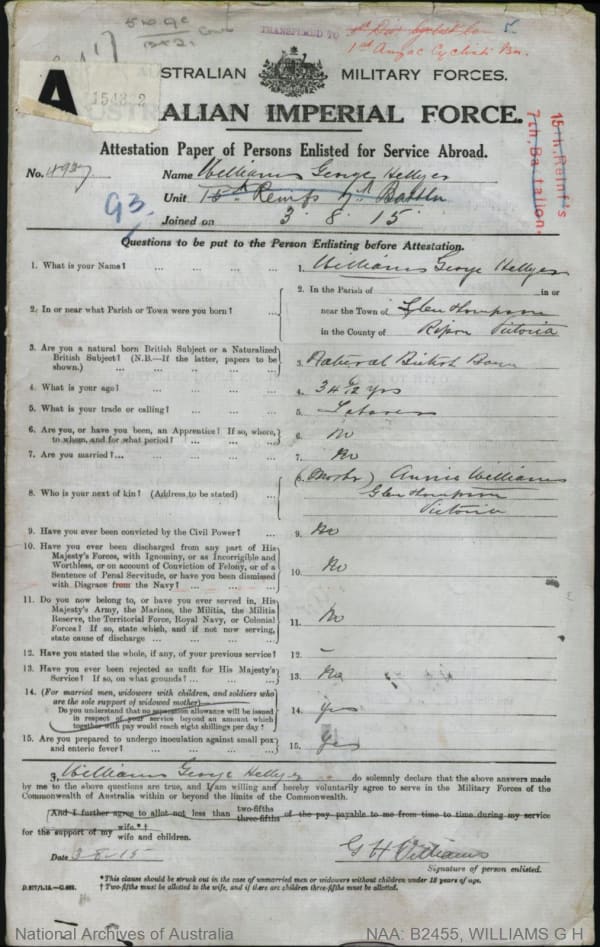 TRANSFERED TO
1st Anzac Cyclist Bn.
A
15182
AUSTRALIAN MILITARY FORCES.
AUSTRALIAN IMPERIAL FORCE.
15th Reinf's
7th Battalion.
Attestation Paper of Persons Enlisted for Service Abroad.
No. 4937 Name Williams George Hellyer
93 Unit 15th Reinfs 7th Battln
Joined on 3 8 15
Questions to be put to the Person Enlisting before Attestation.
1. What is your Name? ... ... ... ... 1. Williams George Hellyer
2. In or near what Parish or Town were you born? ... 2. In the Parish of in or
near the Town of Glen Thompson
in the County of Ripon Victoria
3. Are you a natural born British Subject or a Naturalized
British Subject? (N.B.—If the latter, papers to be
shown.) ... ... ... ... 3. Natural British Born
4. What is your age? ... ... ... ... 4. 34 6/12 yrs
5. What is your trade or calling? ... ... ... 5. Laborer
6. Are you, or have you been, an Apprentice? If so, where,
to whom, and for what period? ... ... ... 6. No
7. Are you married?... ... ... ... 7. No
8. Who is your next of kin? (Address to be stated) ... 8. (Mother) Annie Williams
Glen Thompson
Victoria
9. Have you ever been convicted by the Civil Power? ... 9. No
10. Have you ever been discharged from any part of His
Majesty's Forces, with Ignominy, or as Incorrigible and
Worthless, or on account of Conviction of Felony, or of a
Sentence of Penal Servitude, or have you been dismissed
with Disgrace from the Navy? ... ... ... 10. No
11. Do you now belong to, or have you ever served in, His
Majesty's Army, the Marines, the Militia, the Militia
Reserve, the Territorial Force, Royal Navy, or Colonial
Forces? If so, state which, and if not now serving,
state cause of discharge ... ... ... 11. No
12. Have you stated the whole, if any, of your previous service? 12. –
13. Have you ever been rejected as unfit for His Majesty's
Service? If so, on what grounds? ... ... ... 13. No
14. (For married men, widowers with children, and soldiers who
are the sole support of widowed mother)—
Do you understand that no separation allowance will be issued
in respect of your service beyond an amount which
together with pay would reach eight shillings per day? 14. yes
15. Are you prepared to undergo inoculation against small pox
and enteric fever? ... ... ... ... 15. Yes
I, Williams George Hellyer do solemnly declare that the above answers made
by me to the above questions are true, and I am willing and hereby voluntarily agree to serve in the Military Forces of the
Commonwealth of Australia within or beyond the limits of the Commonwealth.
*And I further agree to allot not less than two-fifths three-fifths of the pay payable to me from time to time during my service
for the support of my wife.*† wife and children.
Date 3-8-15 G H Williams
Signature of person enlisted.
*This clause should be struck out in the case of unmarried men or widowers without children under 18 years of age.
D.877/1.15.—C.668. † Two-fifths must be allotted to the wife, and if there are children three-fifths must be allotted.
National Archives of Australia NAA: B2455, WILLIAMS G H